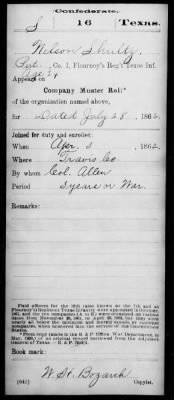 Confederate.
S 16 Texas.
Nelson Shultz.
Pvt., Co. I, Flournoy's Reg't Texas Inf.
Age 24
Appears on
Company Muster Roll*
of the organization named above,
for Dated July 28, 1862
Joined for duty and enrolled:
When Apr. 3, 1862
Where Travis Co
By whom Col. Allen
Period 3 years or War.
Remarks:
Book mark:
W. H. Bozarth
(642) Copyist.